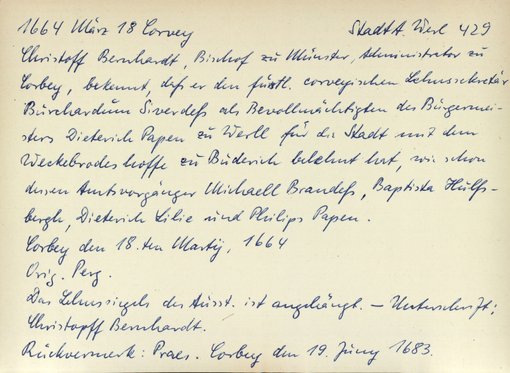 1664 März 18 Corvey StadtA. Werl 429
Christoff Bernhardt, Bischof zu Münster, Administrator zu
Corbey, bekennt, daß er den fürstl. corveyischen Lehnssekretär
Burchardum Siverdeß als Bevollmächtigten des Bürgermei-
sters Dieterich Papen zu Werll für die Stadt mit dem
Weckebrodeshoffe zu Büderich belehnt hat, wie schon
dessen Amtsvorgänger Michaell Brandeß, Baptista Hülfs-
bergh, Dieterich Lilie und Philips Papen.
Corbey den 18.ten Martij, 1664
Orig. Perg.
Das Lehnssiegel des Ausst. ist angehängt. — Unterschrift:
Christopff Bernhardt.
Rückvermerk: Praes. Corbey den 19. Juny 1683.